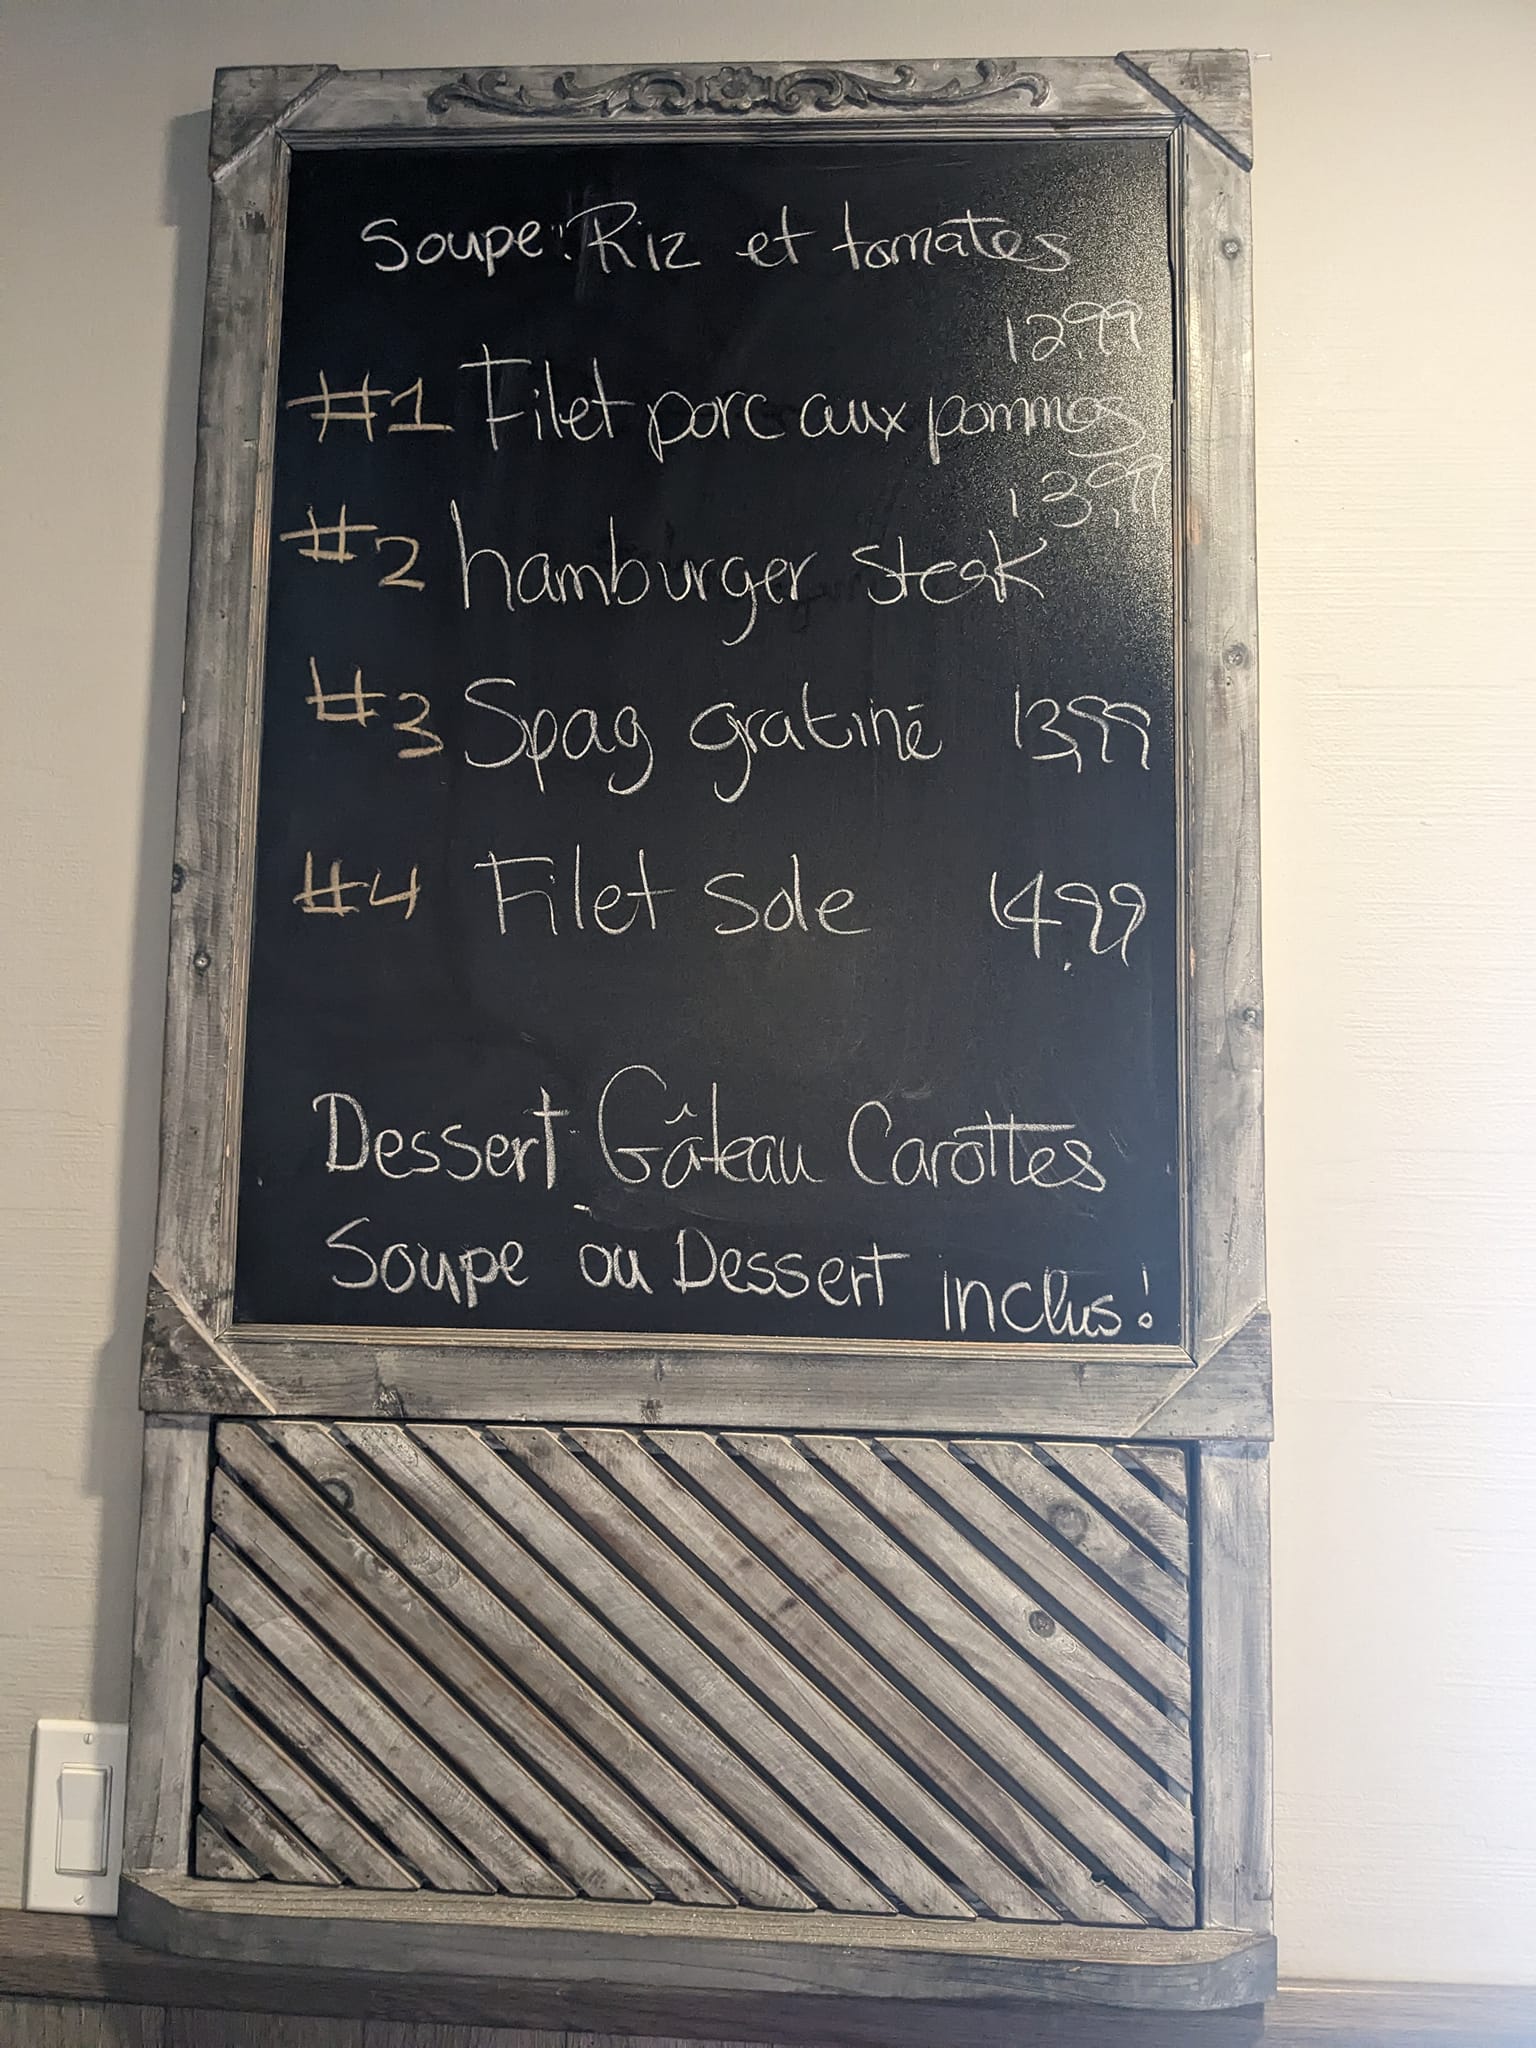 Soupe: Riz et tomates
12.99
#1 Filet porc aux pommes
13,99
#2 hamburger steak
#3 Spag gratiné 13,99
#4 Filet Sole 14.99
Dessert Gâteau Carottes
Soupe ou Dessert inclus!